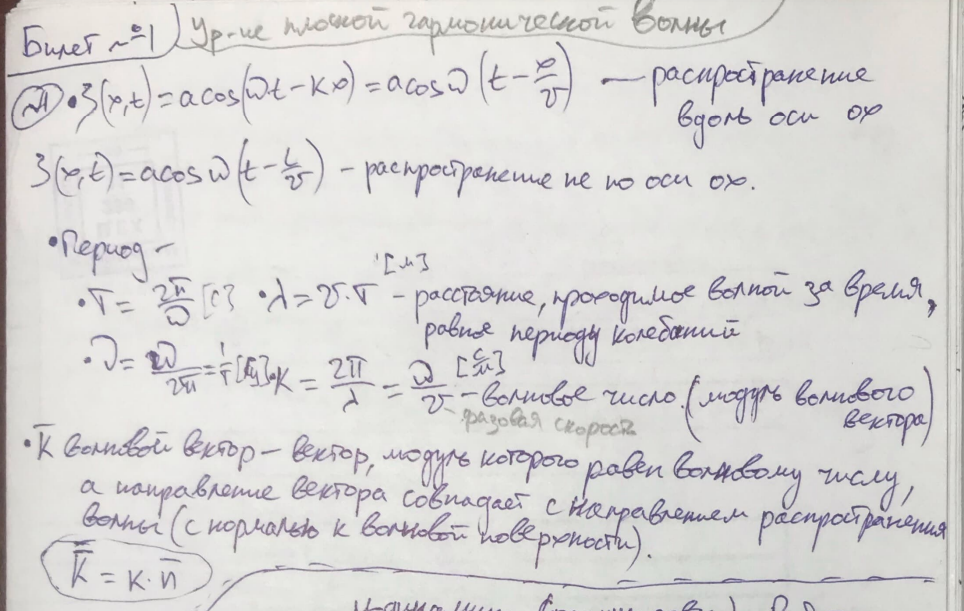 Билет №1 Ур-ие плоской гармонической волны
№1 • ξ(x,t) = a cos(ωt - kx) = a cos ω (t - x/v) — распространение
вдоль оси ox
ξ(x,t) = a cos ω (t - l/v) - распространение не по оси ox.
• Период -
• T = 2π/ω [с] • λ = v·T [м] - расстояние, проходимое волной за время,
равное периоду колебаний
• ν = ω/2π = 1/T [Гц] • K = 2π/λ = ω/v - волновое число. (модуль волнового
вектора)
фазовая скорость
• K̄ волновой вектор - вектор, модуль которого равен волновому числу,
а направление вектора совпадает с направлением распространения
волны (с нормалью к волновой поверхности).
K̄ = K · n̄